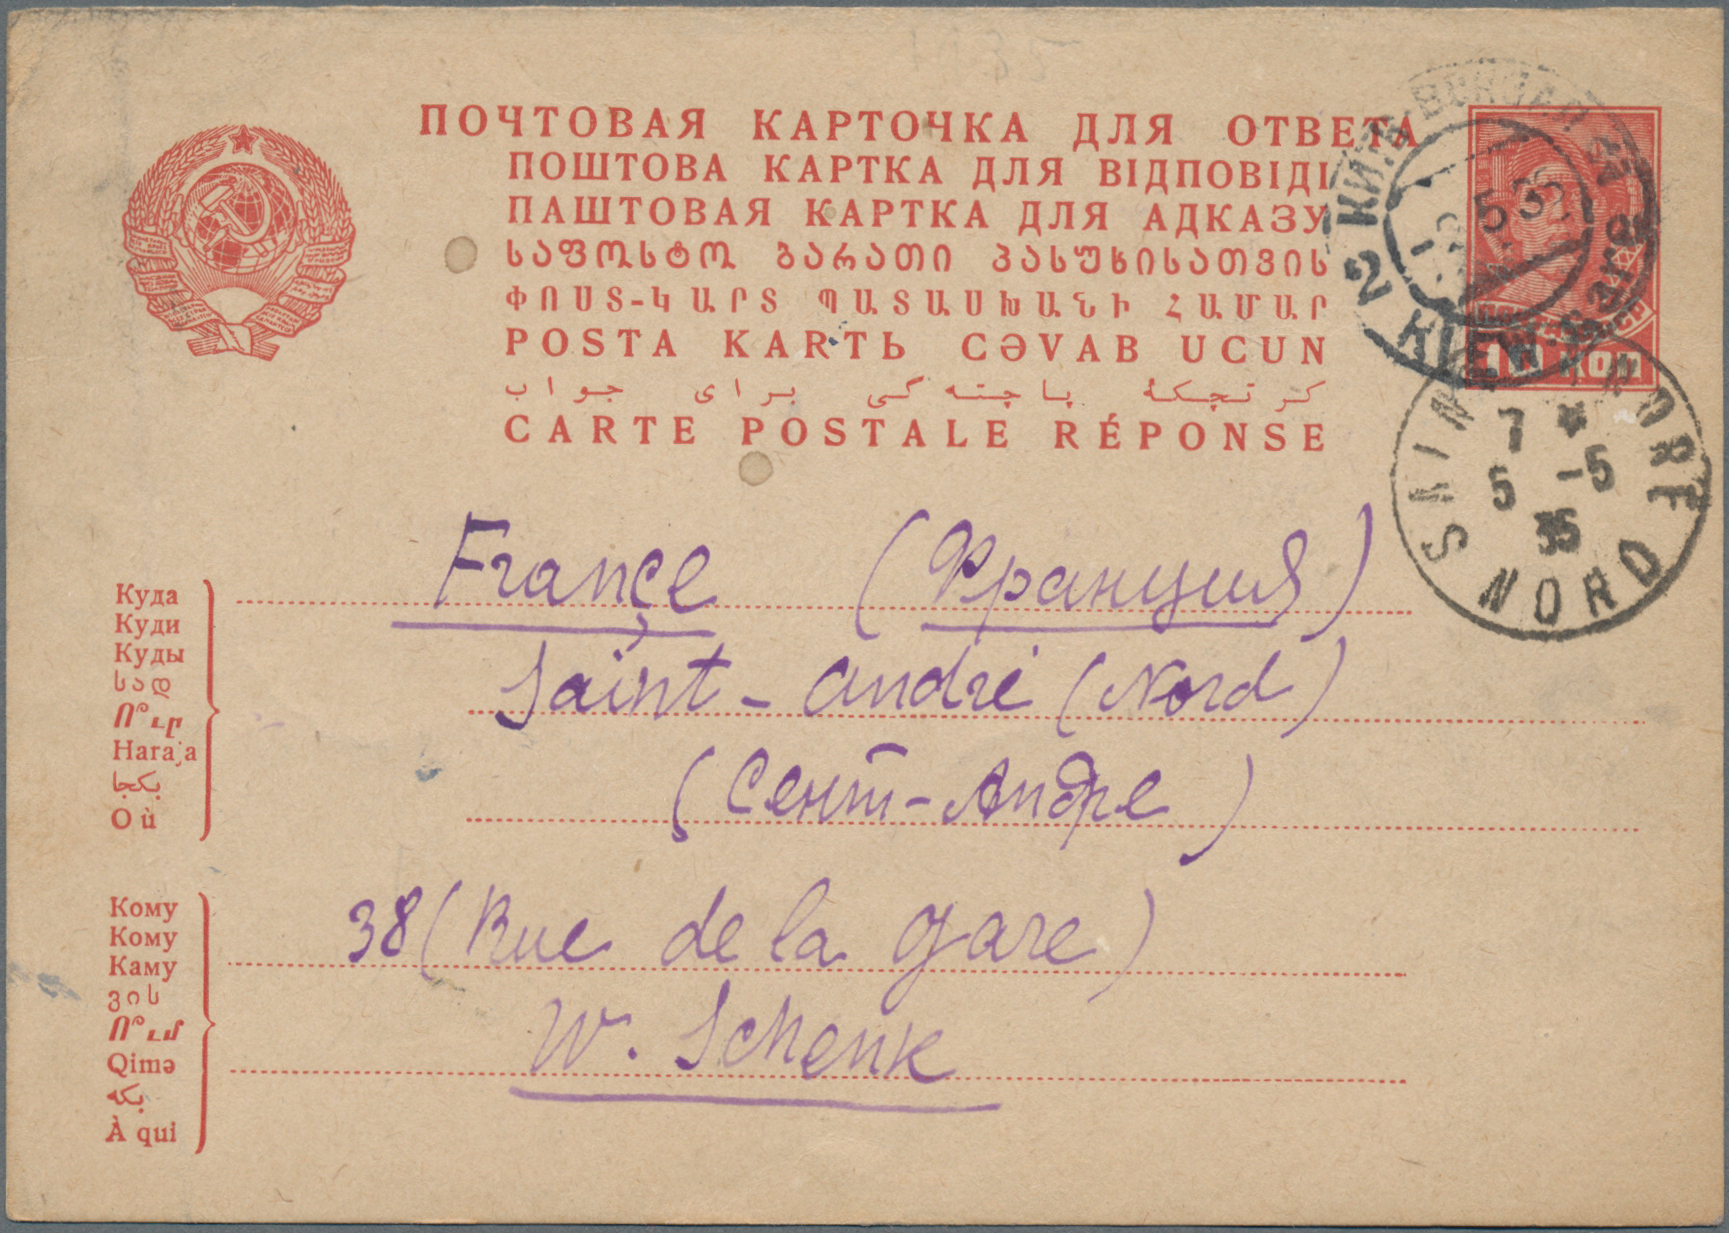 ПОЧТОВАЯ КАРТОЧКА ДЛЯ ОТВЕТА
ПОШТОВА КАРТКА ДЛЯ ВІДПОВІДІ
ПАШТОВАЯ КАРТКА ДЛЯ АДКАЗУ
ᲡᲐᲤᲝᲡᲢᲝ ᲑᲐᲠᲐᲗᲘ ᲞᲐᲡᲣᲮᲘᲡᲐᲗᲕᲘᲡ
ՓՈՍՏ-ԿԱՐՏ ՊԱՏԱՍԽԱՆԻ ՀԱՄԱՐ
POSTA KARTЬ CƏVAB UCUN
كرتچكهٔ پاچتهكی برای جواب
CARTE POSTALE RÉPONSE
2 КИЇВ ВОКЗАЛ
5 35
2 KIEW
10 КОП
SAINT ANDRE
7 *
5 -5
35
NORD
Куда
Куди
Куды
სად
Ո՞ւր
Haraja
بكجا
Où
Françe (Франция)
Saint-André (Nord)
(Сент-Андре)
Кому
Кому
Каму
ვის
Ո՞ւմ
Qimə
بكه
À qui
38 (Rue de la gare)
W. Schenk